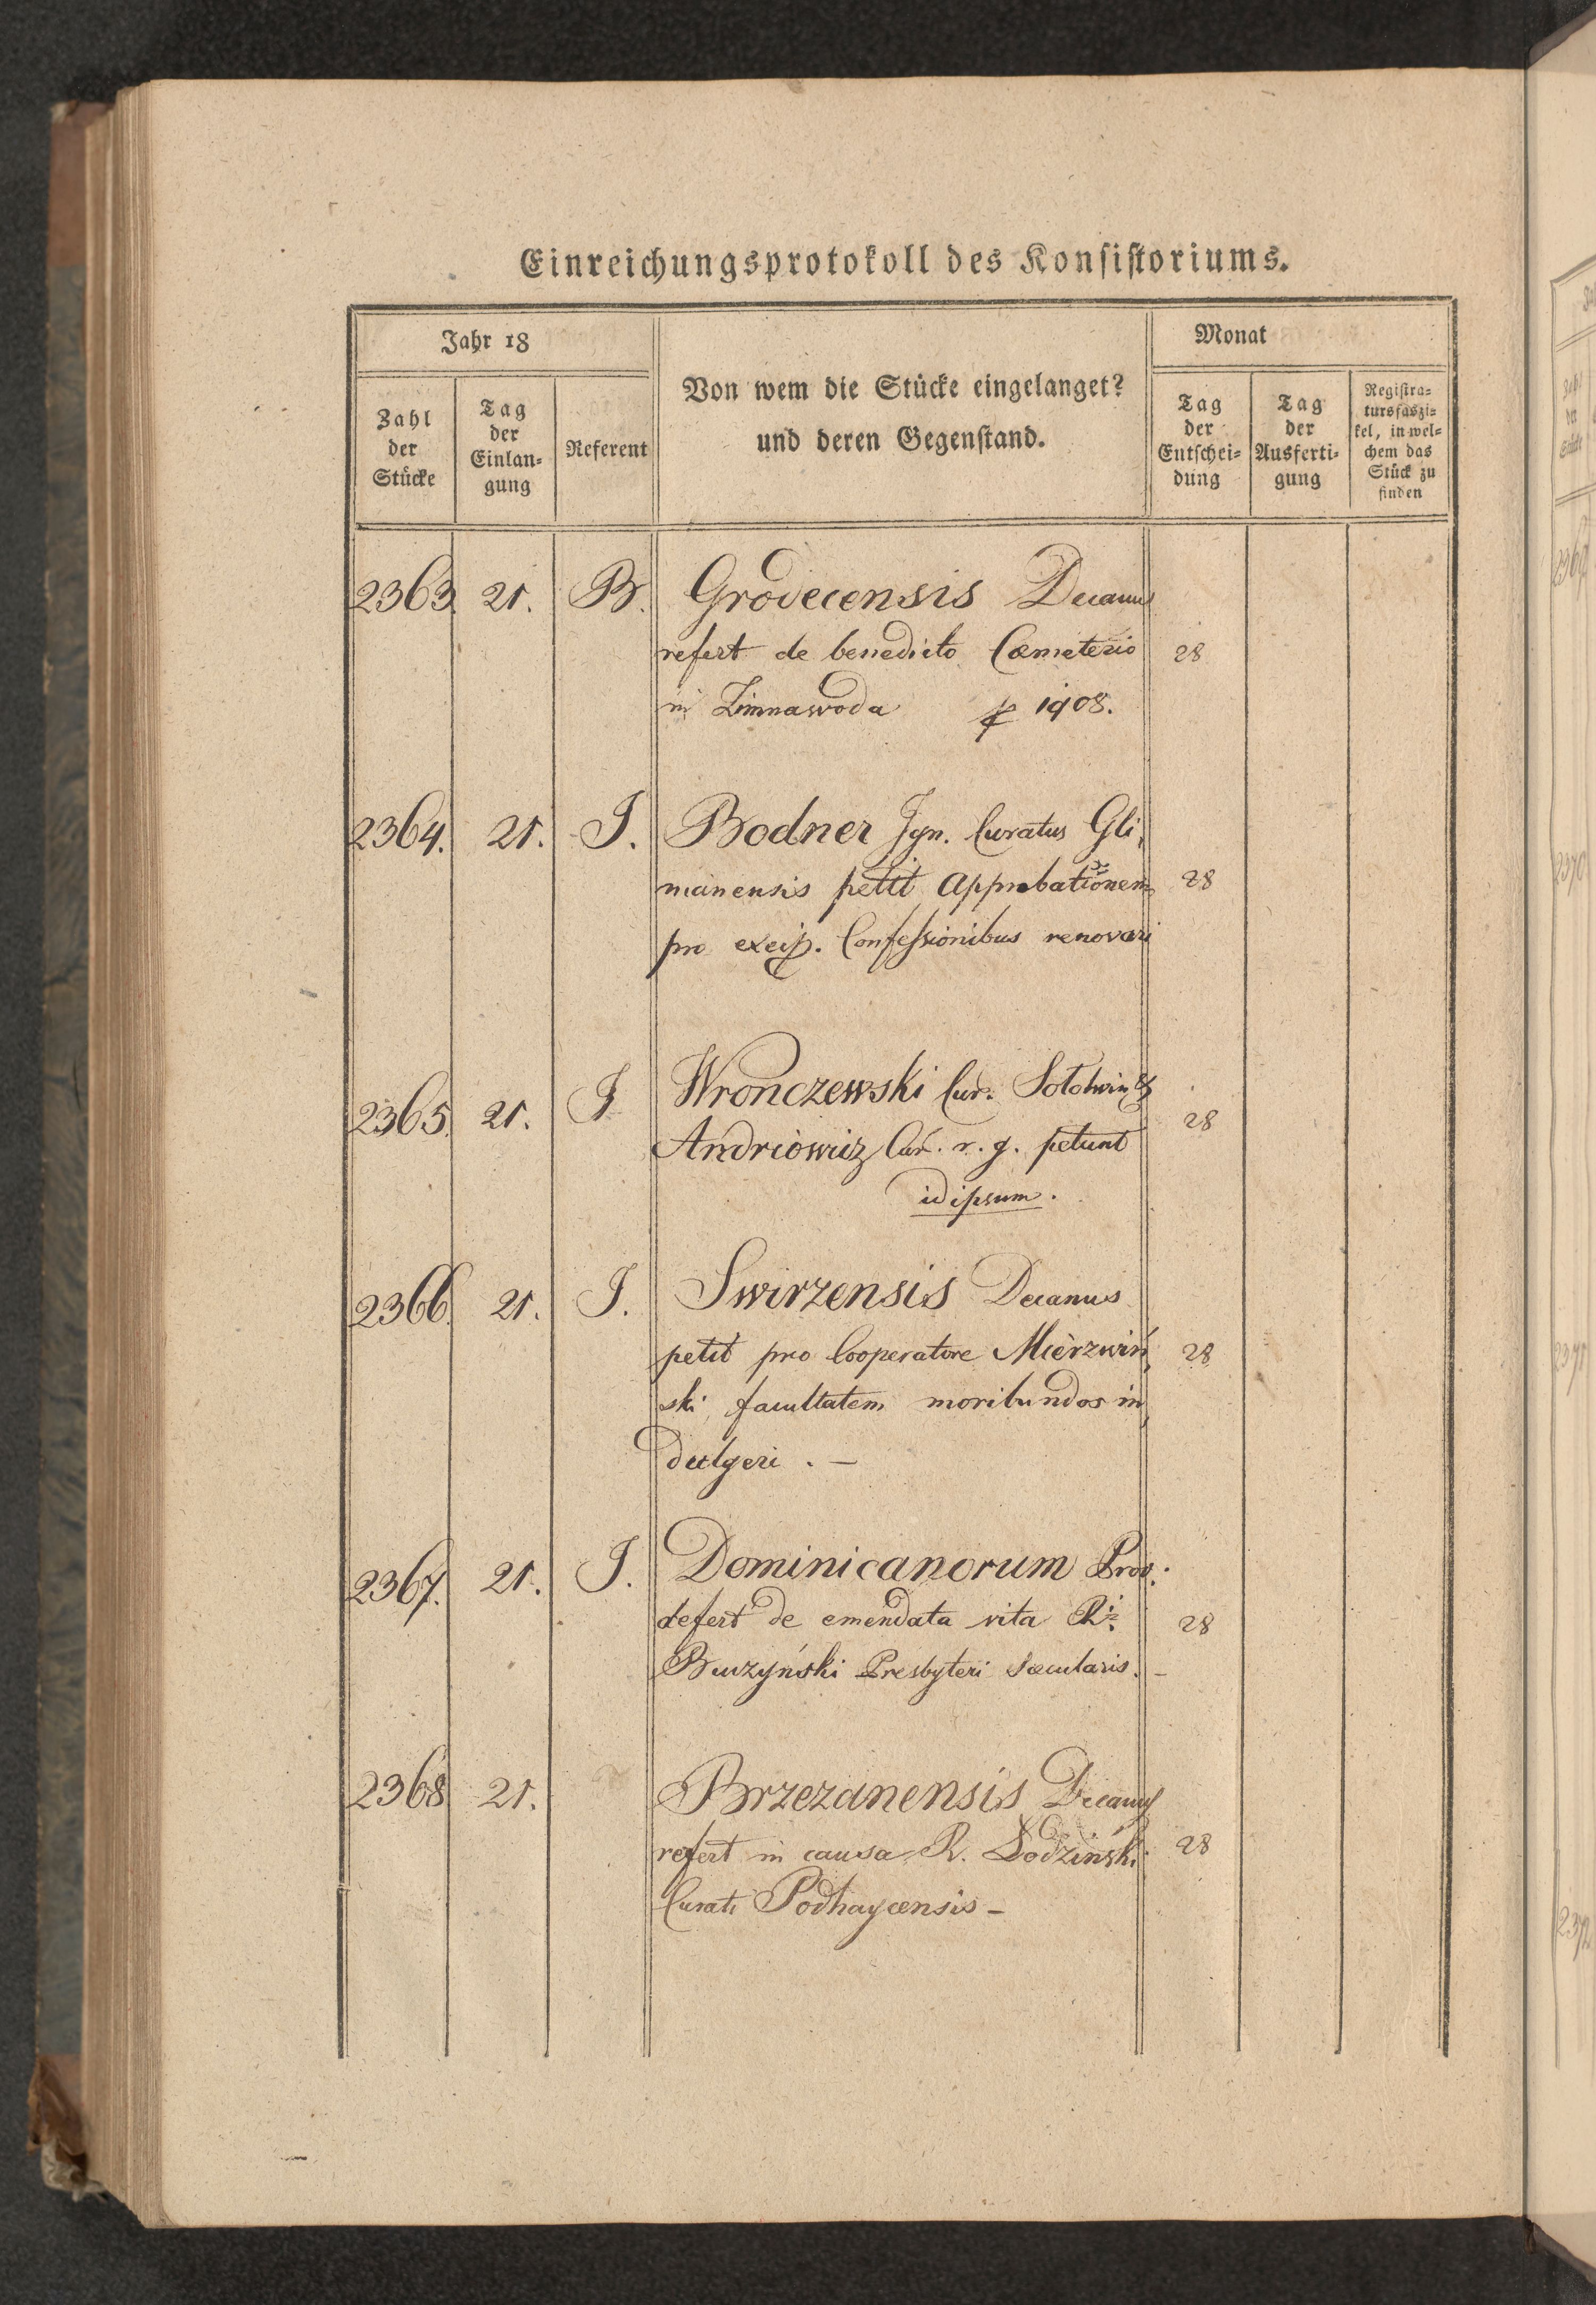 Einreichungsprotokoll des Konsistoriums.
Jahr 18
Monat
Zahl der Stücke
Tag der Einlan-gung
Referent
Von wem die Stücke eingelanget?
und deren Gegenstand.
Tag der Entschei-dung
Tag der Ausferti-gung
Registra-tursfaszi-kel, in wel-chem das Stück zu finden
2363. 21. B. Grodecensis Decanus
refert de benedicto Cœmeterio 28
in Zimnawoda 1908.
2364. 21. J. Bodner Ign. Curatus Gli,
nianensis petit Approbationem 28
pro excip. Confessionibus renovari
2365. 21. J Wronczewski Cur. Sołotwin. &
Andriowicz Cur. r. g. petunt 28
id ipsum.
2366. 21. J. Swirzensis Decanus
petit pro Cooperatore Mierzwiń, 28
ski facultatem moribundos in,
dulgeri . –
2367. 21. J. Dominicanorum Prov.
defert de emendata vita Ri. 28
Buczyński Presbyteri Sæcularis. –
2368 21. Brzezanensis Decanus
refert in causa R. Łodziński 28
Curati Podhaycensis –